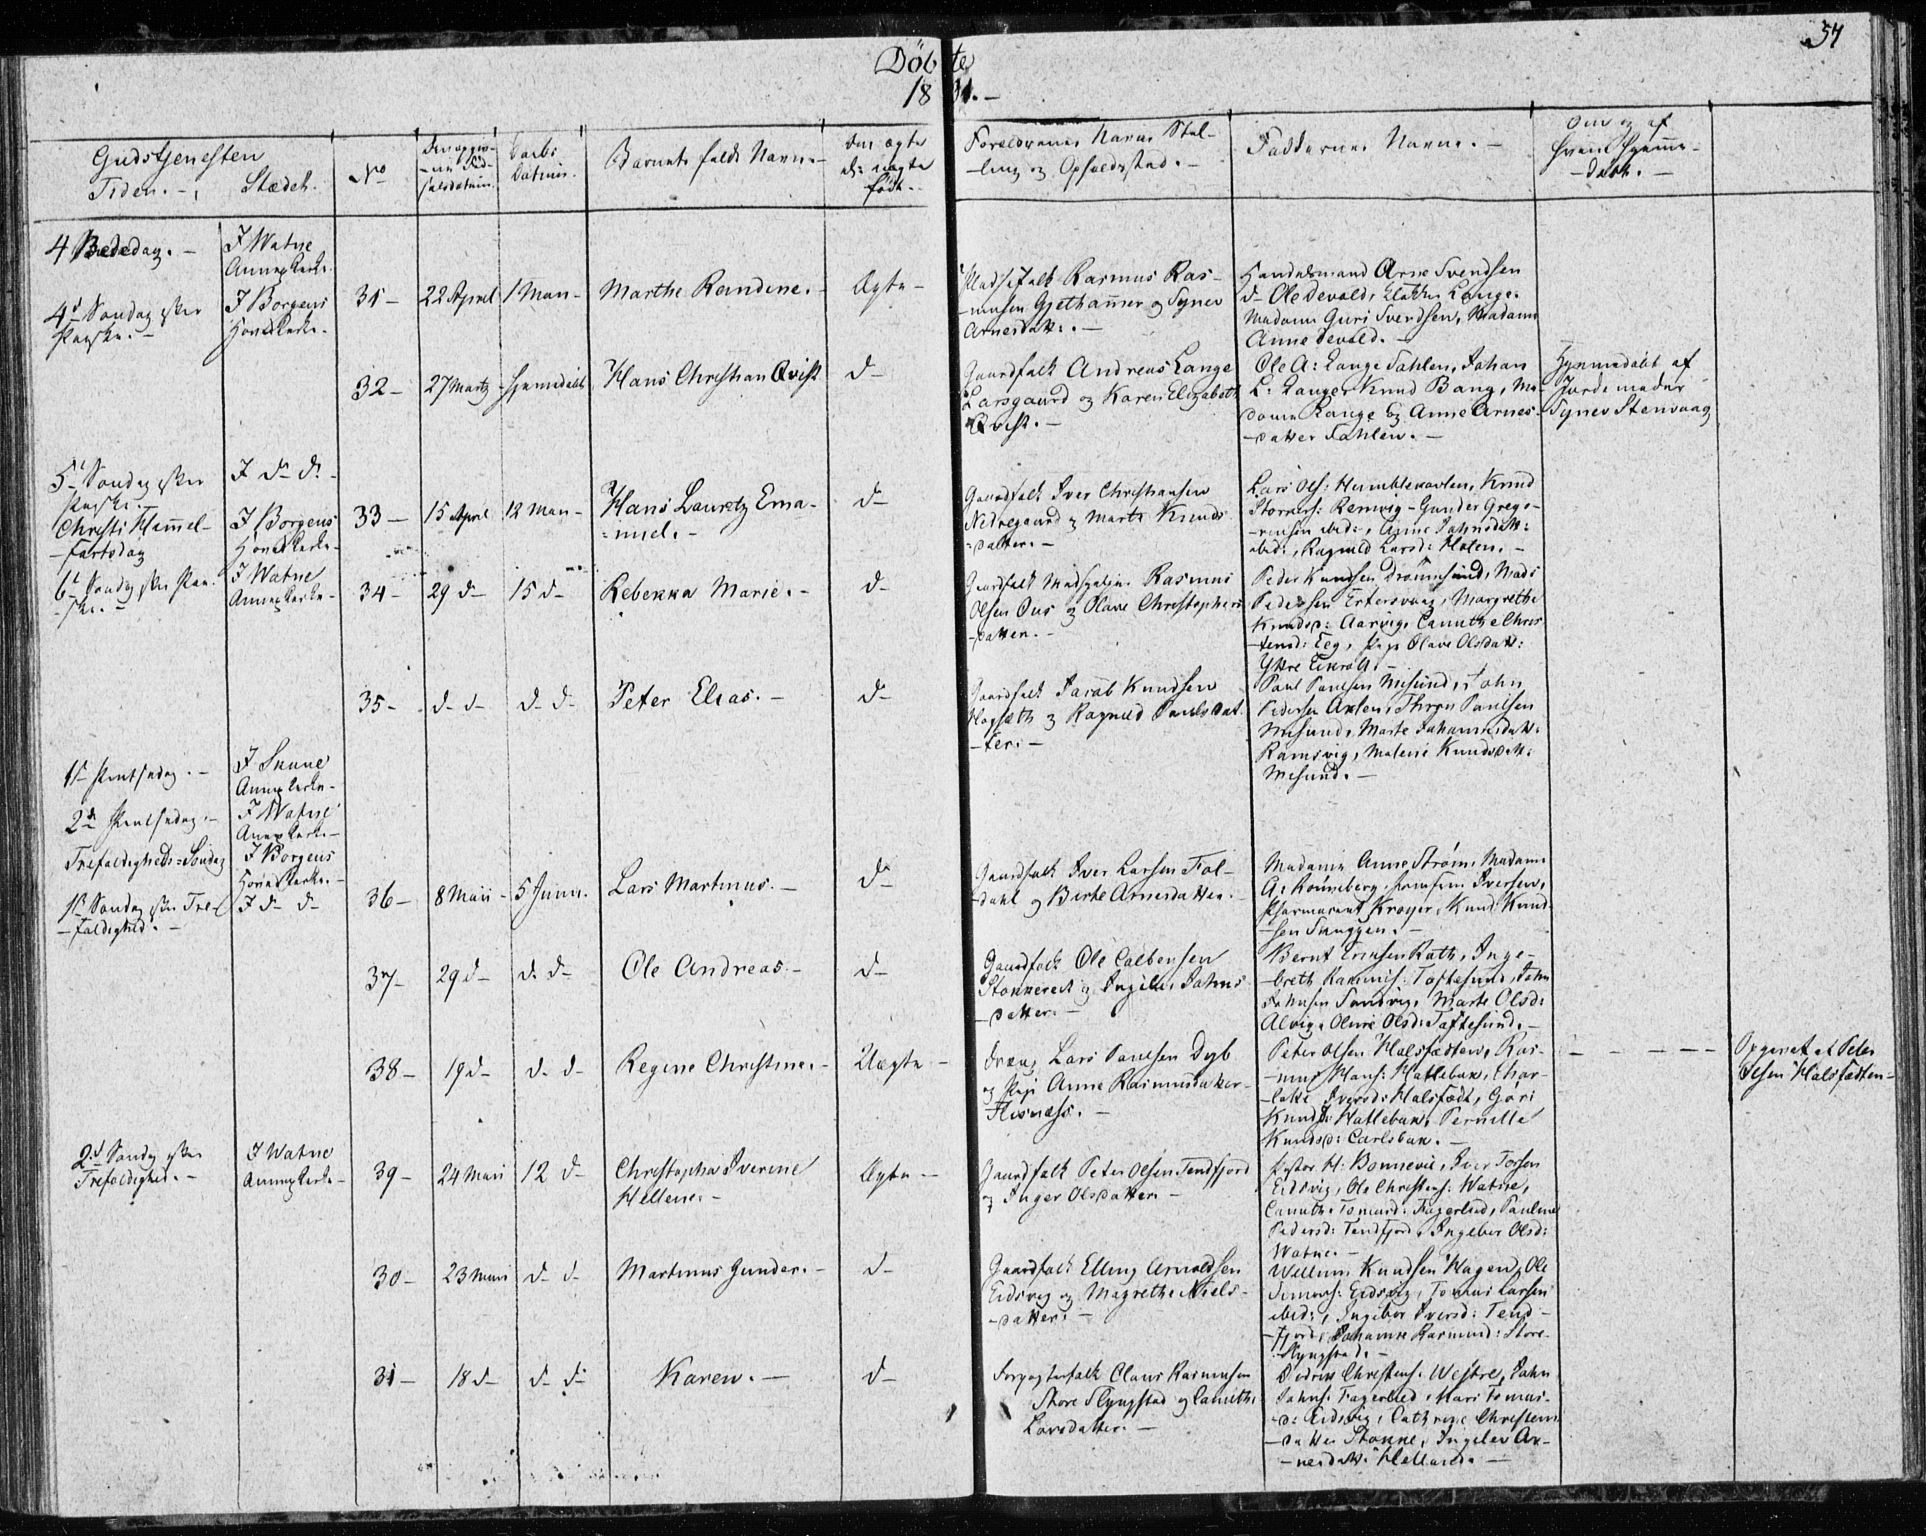 54
Döbte
1831.-
Gudstjenesten
Tiden.- Stædet.
No
Den opgiv-
-ne Föd-
selsdatum.
Daabs
Datum.
Barnets fulde Navn.-
Om ægte
el: uægte
född.-
Foreldrenes Navne Stil-
-ling og Opholdsstad.-
Faddernes Navne.-
Om og af
hvem hjemme-
-döbt.-
4 Bededag.-
I Watne
Annexkerke.
4d Söndag efter
Paaske.-
I Borgens
Hovedkerke.
31- 22 April 1 Maii- Marthe Randine.- Ægte-
Pladsefolk Rasmus Ras-
-musen Gjethammer og Synev
Arnesdatt:.-
Handelsmand Arne Svendsen
d- Ole Devold, Lange.
Madame Guri Svendsen, Madame
Anne Devold.-
32- 27 Marty Hjemedöbt Hans Christian Qvist d-
Gaardfolk Andreas Lange
Larsgaard og Karen Elizabeth
Qvist.-
Ole A: Lange Dahlen, Johan
L: Lange, Knud Bang, Ma-
dame Lange og Anne Arnes-
-datter Dahlen.-
Hjemmedöbt af
Jordemoder
Synev Stenvaag
5t Söndag efter
Paaske.-
I d- d-
Christi Himmel-
-fartsdag
I Borgens
Hovedkerke-
33- 15 April 12 Maii- Hans Lauretz Ema-
=nuel.- d-
Gaardfolk Iver Christiansen
Nedregaard og Marte Knuds
=datter.-
Lars Ols: Humblekavlen, Knud
Remvig- Gunder Grego-
-riusen ibid:, Anne Jahnsdatt:
ibid:, Ragnild Larsd: Holen.-
6t Söndag efter Paa-
-ske.-
I Watne
Annexkerke-
34- 29 d- 15 d- Rebekka Marie.- d-
Gaardfolk Rasmus
Olsen Ous og Olave Christophers
-datter.-
Peder Knudsen Drönnesund, Mads
Pedersen Erkersvaag, Margrethe
Knudsd: Aarvig, Canuthe Chris
-tensd: Eeg, Pige Olave Olsdatt:
Yttre Eikrolt.-
35- d- d- d- d- Peter Elias.- d-
Gaardfolk Jacob Knudsen
og Ragnild Paulsdat-
-ter.-
Paul Paulsen Misund, John
Pedersen Axlen, Paulsen
Misund, Marte Johannesdatt:
Ramsvig, Malene Knudsdatt:
Misund.-
1st Pintsedag.-
I Skune
Annexkerke-
2d Pintsedag.-
I Watne
Annexkerke-
Trefoldigheds=Söndag
I Borgens
Hovedkerke.-
1st Söndag efter Tre-
-foldighed.-
I d- d-
36- 8 Maii- 5 Junii. Lars Martinus.- d-
Gaardfolk Iver Larsen Fol-
-dahl og Birte Arnesdatter.
Madame Anne Ström, Madame
A: Rönneberg, Jomfrue Iversen,
Pharmaceut Kroyer, Knud Knud-
-sen Sunggen.-
37- 29 d- d- d- Ole Andreas.- d-
Gaardfolk Ole Colbensen
Stokkereit og Ingeber Jahns
-datter.-
Bernt Rath, Inge-
-breth Rasmus: Toftesund, John
Johnsen Sundvig, Marte Olsd:
Alvig, Oline Olsd: Toftesund.-
38- 19 d- d- d- Regine Christine.- Uægte-
Dreng Lars Paulsen Dyb
og Pige Anne Rasmusdatter-
Flisnæss.-
Peter Olsen Halsfædten, Ras-
-mus Hans: Hatlebak, Char-
-lotte Iversd: Halsfædt, Göri
Knudsd: Hatlebak, Pernille
Knudsd: Carlsbak.-
- - - -
Opgivet at Peter
Olsen Halsfædten-
2d Söndag efter
Trefoldighed.-
I Watne
Annexkerke-
39- 24 Maii 12 d- Christopha Iverine
Hellene.- Ægte-
Gaardfolk Peter Olsen Tendfjord
og Inger Olsdatter.-
Pastor H: Bonnevie, Iver Torsen
Eidsvig, Ole Christens: Watne,
Canuthe Tomasd: Fagerlied, Pauline
Pedersd: Tendfjord, Ingebor Olsd:
Watne.-
30- 23 Maii d- d- Martinus Gunder.- d-
Gaardfolk Elling Arnoldsen
Eidsvig og Magrethe Niels-
-datter.-
Willum Knudsen Hagen, Ole
Simons: Eidsvig, Tomas Larsen
ibid:, Ingebor Iversd: Tend-
-fjord, Johanne Rasmusd: Store-
Slyngstad.-
31- 18 d- d- d- Karen.- d-
Forpagterfolk Claus Rasmusen
Store Slyngstad og Canuthe
Larsdatter.-
Didrik Christens: Westre, John
Johns: Fagerlied, Mari Tomas-
-d: Eidsvig, Cathrine Christens
-datter Stokke, Ingeber Ar-
-nesdatt: Helland.-